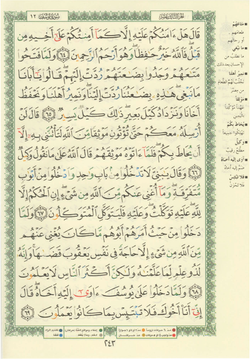 قَالَ هَلْ ءَامَنُكُمْ عَلَيْهِ إِلَّا كَمَآ أَمِنتُكُمْ عَلَىٰٓ أَخِيهِ مِن
قَبْلُ فَٱللَّهُ خَيْرٌ حَٰفِظًا وَهُوَ أَرْحَمُ ٱلرَّٰحِمِينَ ﴿٦٤﴾ وَلَمَّا فَتَحُوا۟
مَتَٰعَهُمْ وَجَدُوا۟ بِضَٰعَتَهُمْ رُدَّتْ إِلَيْهِمْ قَالُوا۟ يَٰٓأَبَانَا
مَا نَبْغِى هَٰذِهِۦ بِضَٰعَتُنَا رُدَّتْ إِلَيْنَا وَنَمِيرُ أَهْلَنَا وَنَحْفَظُ
أَخَانَا وَنَزْدَادُ كَيْلَ بَعِيرٍ ذَٰلِكَ كَيْلٌ يَسِيرٌ ﴿٦٥﴾ قَالَ لَنْ
أُرْسِلَهُۥ مَعَكُمْ حَتَّىٰ تُؤْتُونِ مَوْثِقًا مِّنَ ٱللَّهِ لَتَأْتُنَّنِى بِهِۦٓ إِلَّآ
أَن يُحَاطَ بِكُمْ فَلَمَّآ ءَاتَوْهُ مَوْثِقَهُمْ قَالَ ٱللَّهُ عَلَىٰ مَا نَقُولُ وَكِيلٌ
﴿٦٦﴾ وَقَالَ يَٰبَنِىَّ لَا تَدْخُلُوا۟ مِنۢ بَابٍ وَٰحِدٍ وَٱدْخُلُوا۟ مِنْ أَبْوَٰبٍ
مُّتَفَرِّقَةٍ وَمَآ أُغْنِى عَنكُم مِّنَ ٱللَّهِ مِن شَىْءٍ إِنِ ٱلْحُكْمُ إِلَّا
لِلَّهِ عَلَيْهِ تَوَكَّلْتُ وَعَلَيْهِ فَلْيَتَوَكَّلِ ٱلْمُتَوَكِّلُونَ ﴿٦٧﴾ وَلَمَّا
دَخَلُوا۟ مِنْ حَيْثُ أَمَرَهُمْ أَبُوهُم مَّا كَانَ يُغْنِى عَنْهُم
مِّنَ ٱللَّهِ مِن شَىْءٍ إِلَّا حَاجَةً فِى نَفْسِ يَعْقُوبَ قَضَىٰهَا وَإِنَّهُۥ
لَذُو عِلْمٍ لِّمَا عَلَّمْنَٰهُ وَلَٰكِنَّ أَكْثَرَ ٱلنَّاسِ لَا يَعْلَمُونَ
﴿٦٨﴾ وَلَمَّا دَخَلُوا۟ عَلَىٰ يُوسُفَ ءَاوَىٰٓ إِلَيْهِ أَخَاهُ قَالَ
إِنِّىٓ أَنَا۠ أَخُوكَ فَلَا تَبْتَئِسْ بِمَا كَانُوا۟ يَعْمَلُونَ ﴿٦٩﴾
٢٤٣